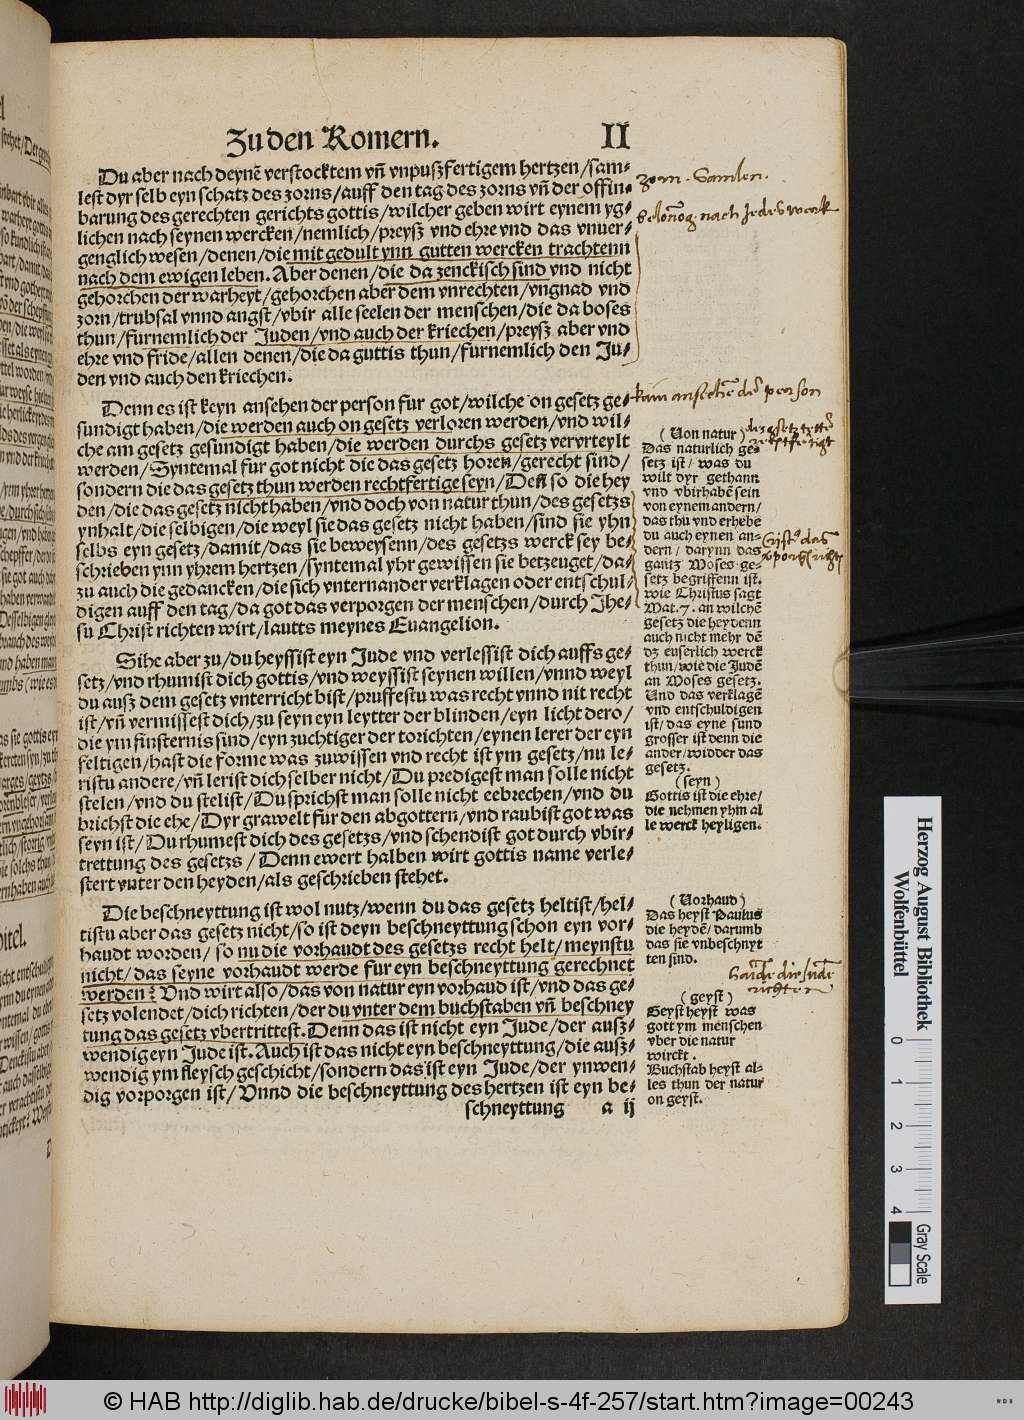 Zu den Romern.
II
Du aber nach deynē verstocktem vn̄ vnpuszfertigem hertzen/sam-
lest dyr selb eyn schatz des zorns/auff den tag des zorns vn̄ der offin-
barung des gerechten gerichts gottis/wilcher geben wirt eynem yg-
lichen nach seynen wercken/nemlich/preysz vnd ehre vnd das vnuer-
genglich wesen/denen/die mit gedult ynn gutten wercken trachtenn
nach dem ewigen leben. Aber denen/die da zenckisch sind vnd nicht
gehorchen der warheyt/gehorchen aber dem vnrechten/vngnad vnd
zorn/trubsal vnnd angst/vbir alle seelen der menschen/die da boses
thun/furnemlich der Juden/vnd auch der kriechen/preysz aber vnd
ehre vnd fride/allen denen/die da guttis thun/furnemlich den Ju-
den vnd auch den kriechen.
Denn es ist keyn ansehen der person fur got/wilche on gesetz ge-
sundigt haben/die werden auch on gesetz verloren werden/vnd wil-
che am gesetz gesundigt haben/die werden durchs gesetz vervrteylt
werden/Syntemal fur got nicht die das gesetz horen/gerecht sind/
sondern die das gesetz thun werden rechtfertige seyn/Deñ so die hey
den/die das gesetz nicht haben/vnd doch von natur thun/des gesetzs
ynhalt/die selbigen/die weyl sie das gesetz nicht haben/sind sie yhn
selbs eyn gesetz/damit/das sie beweysenn/des gesetzs werck sey be-
schrieben ynn yhrem hertzen/syntemal yhr gewissen sie betzeuget/da-
zu auch die gedancken/die sich vnternander verklagen oder entschul-
digen auff den tag/da got das verporgen der menschen/durch Jhe-
su Christ richten wirt/lautts meynes Euangelion.
Sihe aber zu/du heyssist eyn Jude vnd verlessist dich auffs ge-
setz/vnd rhumist dich gottis/vnd weyssist seynen willen/vnnd weyl
du ausz dem gesetz vnterricht bist/pruffestu was recht vnnd nit recht
ist/vn̄ vermissest dich/zu seyn eyn leytter der blinden/eyn licht dero/
die ym finsternis sind/eyn zuchtiger der torichten/eynen lerer der eyn
feltigen/hast die forme was zuwissen vnd recht ist ym gesetz/nu le-
ristu andere/vn̄ lerist dich selber nicht/Du predigest man solle nicht
stelen/vnd du stelist/Du sprichst man solle nicht eebrechen/vnd du
brichst die ehe/Dyr grawelt fur den abgottern/vnd raubist got was
seyn ist/Du rhumest dich des gesetzs/vnd schendist got durch vbir-
trettung des gesetzs/Denn ewert halben wirt gottis name verle-
stert vnter den heyden/als geschrieben stehet.
Die beschneyttung ist wol nutz/wenn du das gesetz heltist/hel-
tistu aber das gesetz nicht/so ist deyn beschneyttung schon eyn vor-
haudt worden/so nu die vorhaudt des gesetzs recht helt/meynstu
nicht/das seyne vorhaudt werde fur eyn beschneyttung gerechnet
werden? Vnd wirt also/das von natur eyn vorhaud ist/vnd das ge-
setz volendet/dich richten/der du vnter dem buchstaben vn̄ beschney
tung das gesetz vbertrittest. Denn das ist nicht eyn Jude/der ausz-
wendig eyn Jude ist. Auch ist das nicht eyn beschneyttung/die ausz-
wendig ym fleysch geschicht/sondern das ist eyn Jude/der ynwen-
dig vorporgen ist/Vnnd die beschneyttung des hertzen ist eyn be-
schneyttung a ij
zorn. Samlen.
nach Jedes werck
kain ansehē der person
(Von natur)
Das naturlich ge-
setz ist/was du
wilt dyr gethann
vnd vbirhabē sein
von eynem andern/
das thu vnd erhebe
du auch eynen an-
dern/darynn das
gantz Moses ge-
setz begriffenn ist.
wie Christus sagt
Mat.7. an wilchē
gesetz die heydenn
auch nicht mehr dē
dz euserlich werck
thun/wie die Judē
an Moses gesetz.
Vnd das verklagē
vnd entschuldigen
ist/das eyne sund
grosser ist denn die
ander/widder das
gesetz.
(seyn)
Gottis ist die ehre/
die nehmen yhm al
le werck heyligen.
(Vorhaud)
Das heyst Paulus
die heydē/darumb
das sie vnbeschnyt
ten sind.
(geyst)
Geyst heyst was
gott ym menschen
vber die natur
wirckt.
Buchstab heyst al-
les thun der natur
on geyst.
Herzog August Bibliothek
Wolfenbüttel
0 1 2 3 4
Gray Scale
© HAB http://diglib.hab.de/drucke/bibel-s-4f-257/start.htm?image=00243